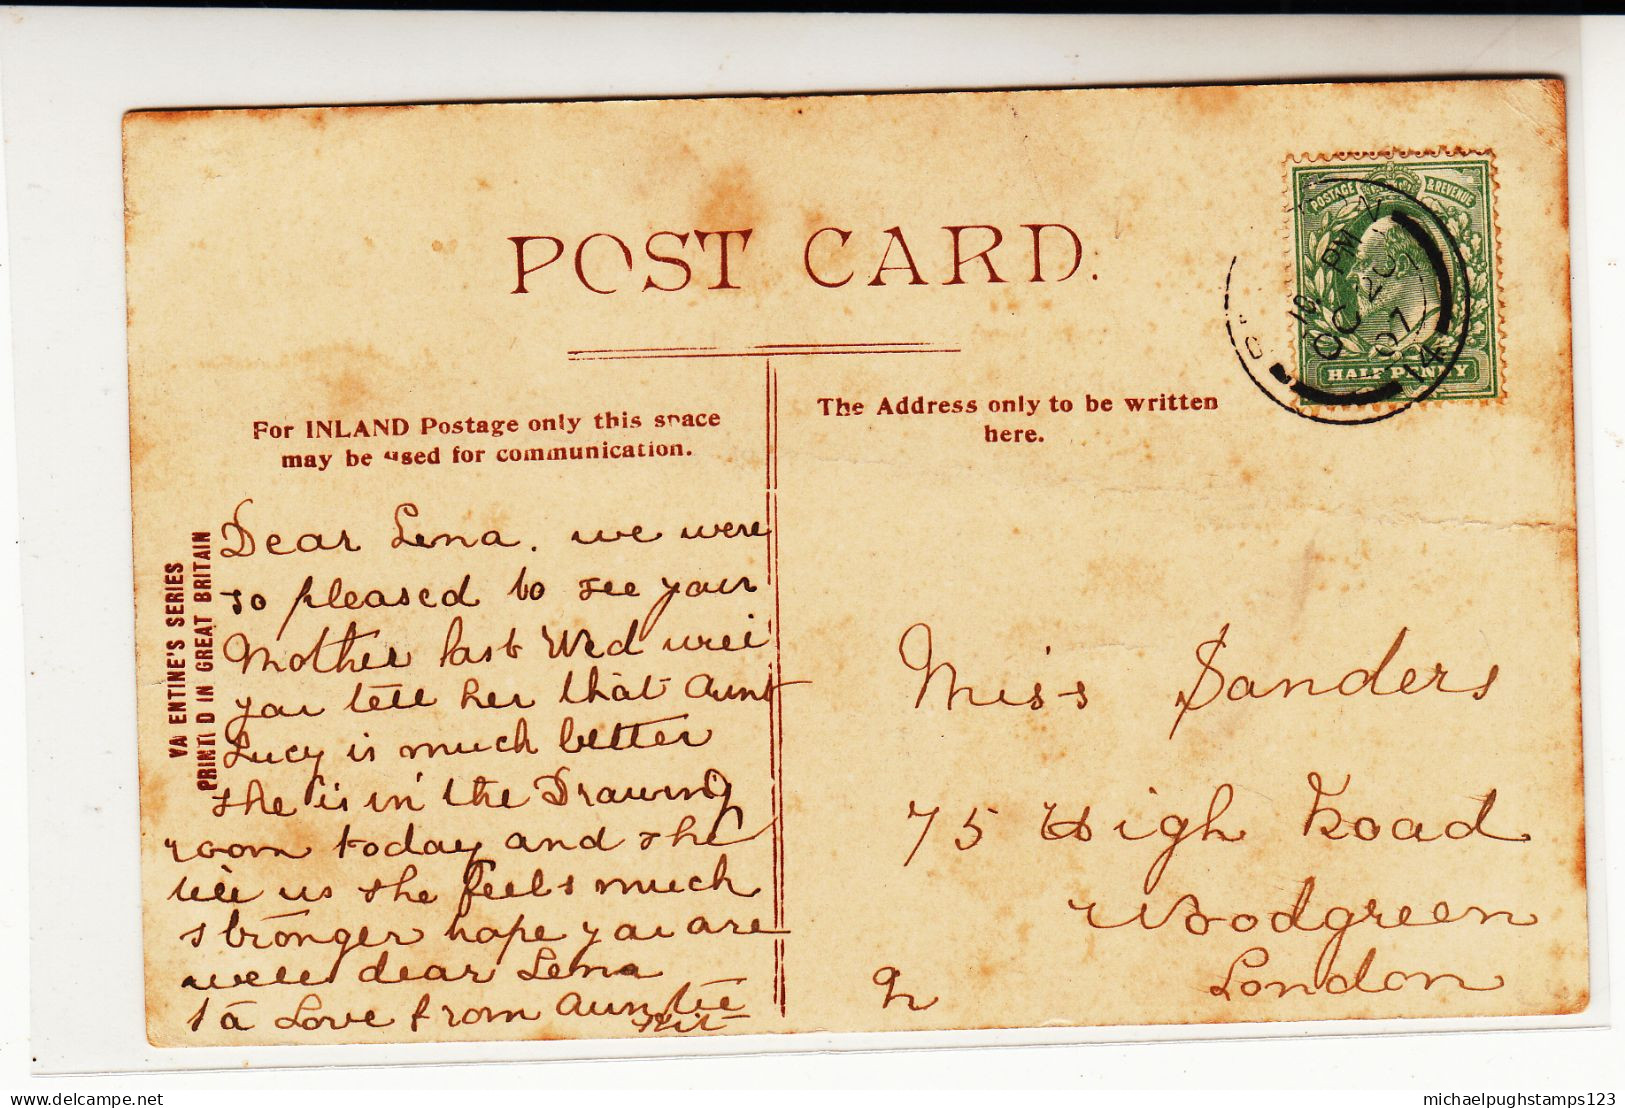 POST CARD.
For INLAND Postage only this space
may be used for communication.
The Address only to be written
here.
POSTAGE & REVENUE
HALFPENNY
PM
OC 20
07
14
VALENTINE'S SERIES
PRINTED IN GREAT BRITAIN
Dear Lena. we were
so pleased to see your
Mother last Wed will
you tell her that Aunt
Lucy is much better
she is in the Drawing
room today and she
tell us she feels much
stronger hope you are
well dear Lena
Love from Auntie
Miss Sanders
75 High Road
Woodgreen
London
michaelpughstamps123